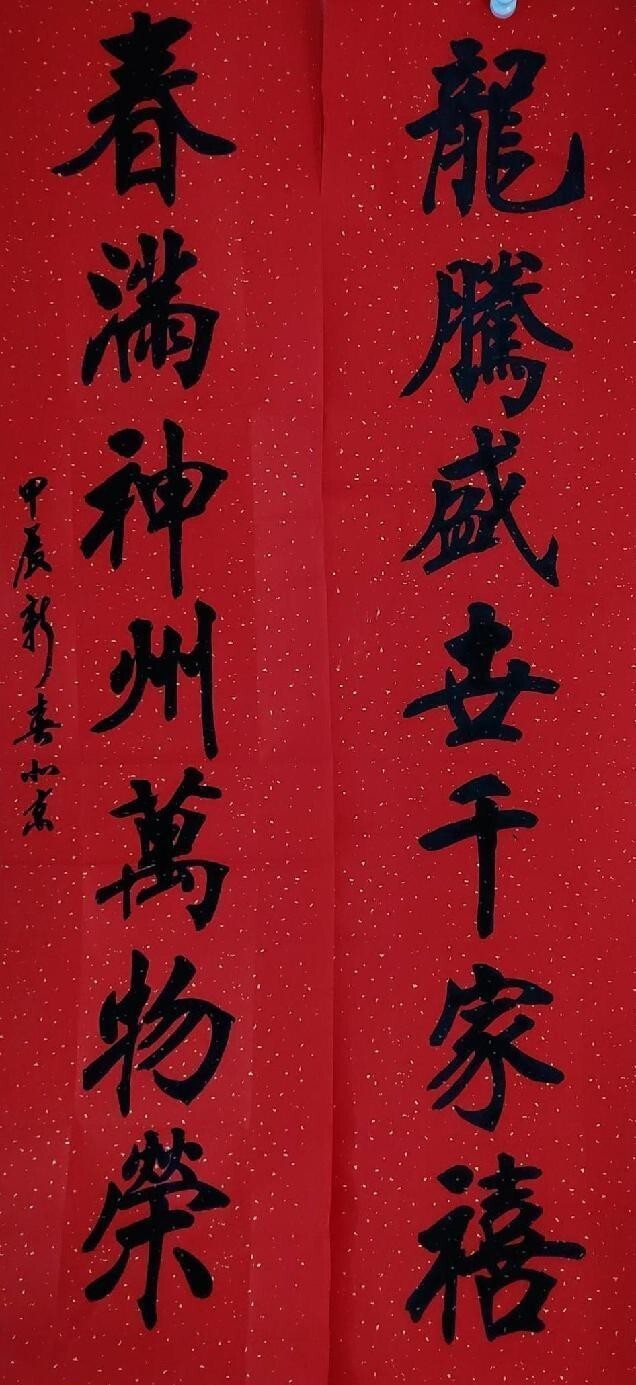 龍騰盛世千家禧
春滿神州萬物榮
甲辰新春北京